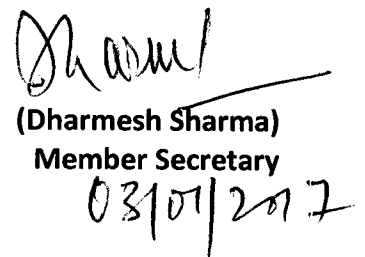 (Dharmesh Sharma)
Member Secretary
03/01/2017